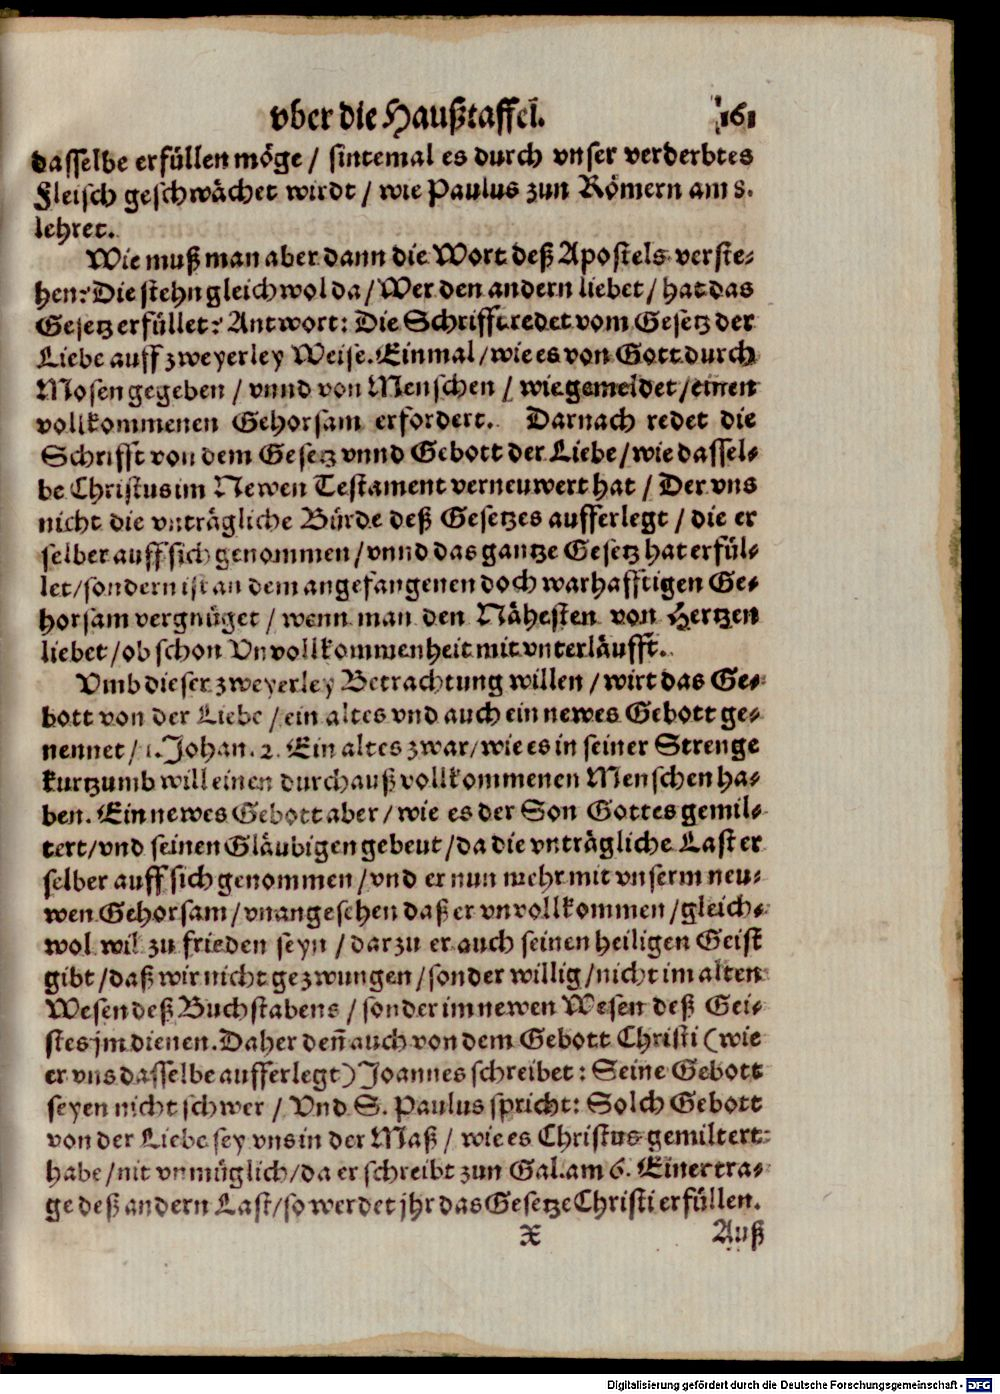 vber die Haußtaffel. 161
dasselbe erfüllen möge / sintemal es durch vnser verderbtes
Fleisch geschwächet wirdt / wie Paulus zun Römern am 8.
lehret.
Wie muß man aber dann die Wort deß Apostels verste-
hen? Die stehn gleichwol da / Wer den andern liebet / hat das
Gesetz erfüllet? Antwort: Die Schrifft redet vom Gesetz der
Liebe auff zweyerley Weise. Einmal / wie es von Gott durch
Mosen gegeben / vnnd von Menschen / wie gemeldet / einen
vollkommenen Gehorsam erfordert. Darnach redet die
Schrifft von dem Gesetz vnnd Gebott der Liebe / wie dassel-
be Christus im Newen Testament verneuwert hat / Der vns
nicht die vnträgliche Bürde deß Gesetzes aufferlegt / die er
selber auff sich genommen / vnnd das gantze Gesetz hat erfül-
let / sondern ist an dem angefangenen doch warhafftigen Ge-
horsam vergnüget / wenn man den Nähesten von Hertzen
liebet / ob schon Vnvollkommenheit mit vnterläufft.
Vmb dieser zweyerley Betrachtung willen / wirt das Ge-
bott von der Liebe / ein altes vnd auch ein newes Gebott ge-
nennet / 1. Johan. 2. Ein altes zwar / wie es in seiner Strenge
kurtzumb will einen durchauß vollkommenen Menschen ha-
ben. Ein newes Gebott aber / wie es der Son Gottes gemil-
tert / vnd seinen Gläubigen gebeut / da die vnträgliche Last er
selber auff sich genommen / vnd er nun mehr mit vnserm neu-
wen Gehorsam / vnangesehen daß er vnvollkommen / gleich-
wol wil zu frieden seyn / darzu er auch seinen heiligen Geist
gibt / daß wir nicht gezwungen / sonder willig / nicht im alten
Wesen deß Buchstabens / sonder im newen Wesen deß Gei-
stes jm dienen. Daher deñ auch von dem Gebott Christi (wie
er vns dasselbe aufferlegt) Joannes schreibet: Seine Gebott
seyen nicht schwer / Vnd S. Paulus spricht: Solch Gebott
von der Liebe sey vns in der Maß / wie es Christus gemiltert
habe / nit vnmüglich / da er schreibt zun Gal. am 6. Einer tra-
ge deß andern Last / so werdet jhr das Gesetze Christi erfüllen.
X Auß
Digitalisierung gefördert durch die Deutsche Forschungsgemeinschaft - DFG